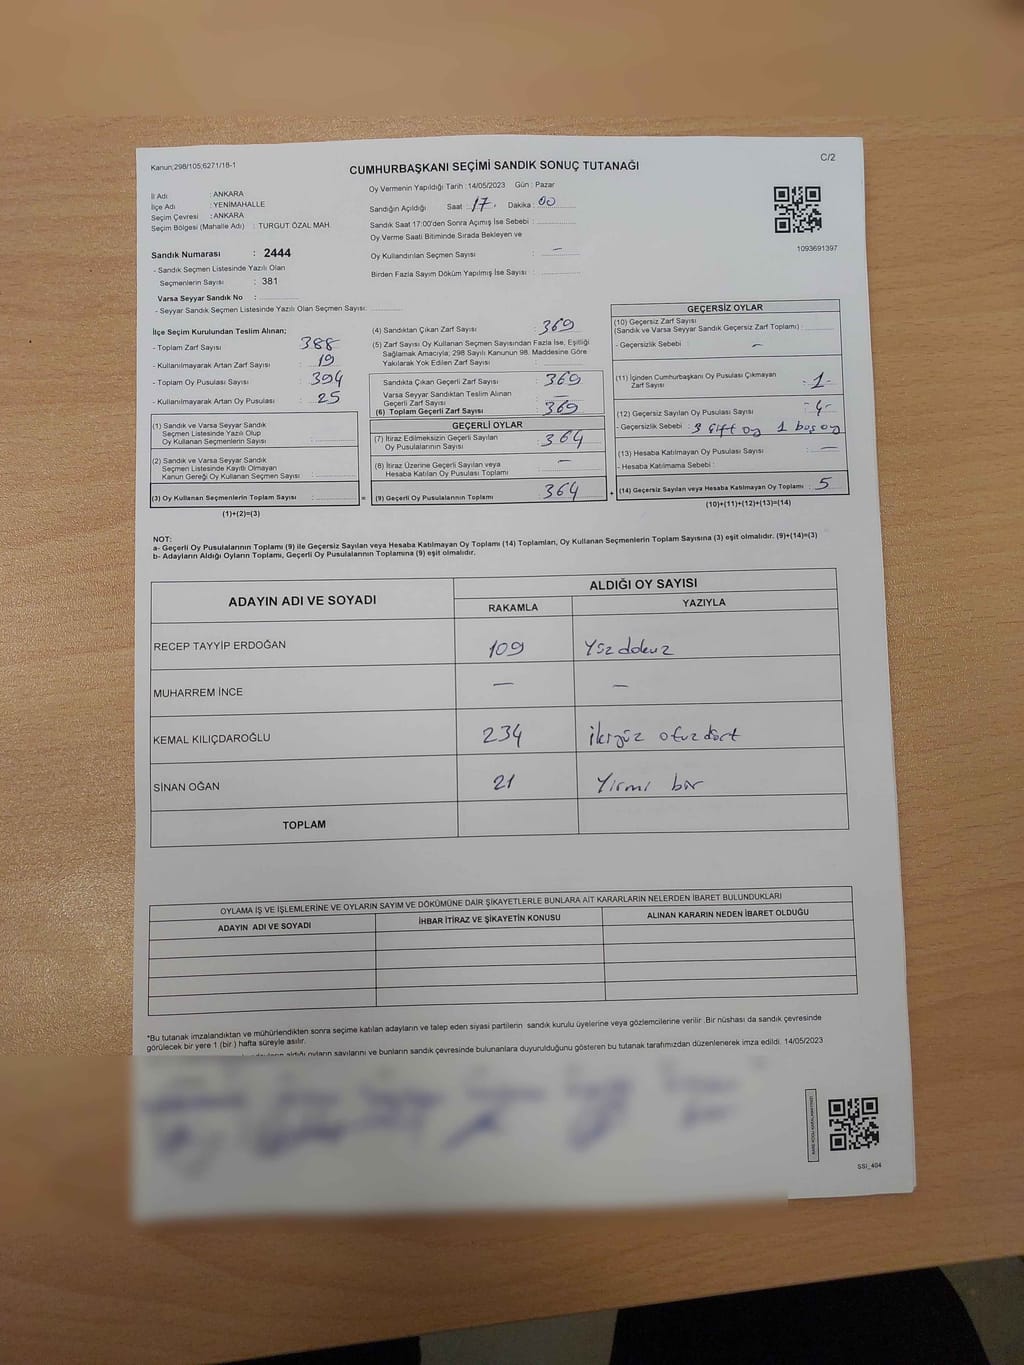 Kanun;298/105;6271/18-1
CUMHURBAŞKANI SEÇİMİ SANDIK SONUÇ TUTANAĞI
C/2
İl Adı : ANKARA
İlçe Adı : YENİMAHALLE
Seçim Çevresi : ANKARA
Seçim Bölgesi (Mahalle Adı) : TURGUT ÖZAL MAH.
Oy Vermenin Yapıldığı Tarih :14/05/2023 Gün : Pazar
Sandığın Açıldığı Saat : 17. Dakika : 00
Sandık Saat 17:00'den Sonra Açımış İse Sebebi :
Oy Verme Saati Bitiminde Sırada Bekleyen ve
Oy Kullandırılan Seçmen Sayısı : —
Birden Fazla Sayım Döküm Yapılmış İse Sayısı :
1093691397
Sandık Numarası : 2444
- Sandık Seçmen Listesinde Yazılı Olan
Seçmenlerin Sayısı : 381
Varsa Seyyar Sandık No :
- Seyyar Sandık Seçmen Listesinde Yazılı Olan Seçmen Sayısı:
İlçe Seçim Kurulundan Teslim Alınan;
- Toplam Zarf Sayısı : 388
- Kullanılmayarak Artan Zarf Sayısı : 19
- Toplam Oy Pusulası Sayısı : 394
- Kullanılmayarak Artan Oy Pusulası : 25
(1) Sandık ve Varsa Seyyar Sandık
Seçmen Listesinde Yazılı Olup
Oy Kullanan Seçmenlerin Sayısı :
(2) Sandık ve Varsa Seyyar Sandık
Seçmen Listesinde Kayıtlı Olmayan
Kanun Gereği Oy Kullanan Seçmen Sayısı :
(3) Oy Kullanan Seçmenlerin Toplam Sayısı : =
(1)+(2)=(3)
(4) Sandıktan Çıkan Zarf Sayısı : 369
(5) Zarf Sayısı Oy Kullanan Seçmen Sayısından Fazla İse, Eşitliği
Sağlamak Amacıyla; 298 Sayılı Kanunun 98. Maddesine Göre
Yakılarak Yok Edilen Zarf Sayısı :
Sandıkta Çıkan Geçerli Zarf Sayısı : 369
Varsa Seyyar Sandıktan Teslim Alınan
Geçerli Zarf Sayısı : —
(6) Toplam Geçerli Zarf Sayısı : 369
GEÇERLİ OYLAR
(7) İtiraz Edilmeksizin Geçerli Sayılan
Oy Pusulalarının Sayısı : 364
(8) İtiraz Üzerine Geçerli Sayılan veya
Hesaba Katılan Oy Pusulası Toplamı : —
(9) Geçerli Oy Pusulalarının Toplamı : 364 +
GEÇERSİZ OYLAR
(10) Geçersiz Zarf Sayısı
(Sandık ve Varsa Seyyar Sandık Geçersiz Zarf Toplamı) :
- Geçersizlik Sebebi : —
(11) İçinden Cumhurbaşkanı Oy Pusulası Çıkmayan
Zarf Sayısı : -1-
(12) Geçersiz Sayılan Oy Pusulası Sayısı : -4-
- Geçersizlik Sebebi : 3 çift oy 1 boş oy
(13) Hesaba Katılmayan Oy Pusulası Sayısı : —
- Hesaba Katılmama Sebebi :
(14) Geçersiz Sayılan veya Hesaba Katılmayan Oy Toplamı : 5
(10)+(11)+(12)+(13)=(14)
NOT:
a- Geçerli Oy Pusulalarının Toplamı (9) ile Geçersiz Sayılan veya Hesaba Katılmayan Oy Toplamı (14) Toplamları, Oy Kullanan Seçmenlerin Toplam Sayısına (3) eşit olmalıdır. (9)+(14)=(3)
b- Adayların Aldığı Oyların Toplamı, Geçerli Oy Pusulalarının Toplamına (9) eşit olmalıdır.
ADAYIN ADI VE SOYADI
ALDIĞI OY SAYISI
RAKAMLA YAZIYLA
RECEP TAYYİP ERDOĞAN 109 Yüz dokuz
MUHARREM İNCE — —
KEMAL KILIÇDAROĞLU 234 ikiyüz otuzdört
SİNAN OĞAN 21 Yirmi bir
TOPLAM
OYLAMA İŞ VE İŞLEMLERİNE VE OYLARIN SAYIM VE DÖKÜMÜNE DAİR ŞİKAYETLERLE BUNLARA AİT KARARLARIN NELERDEN İBARET BULUNDUKLARI
ADAYIN ADI VE SOYADI İHBAR İTİRAZ VE ŞİKAYETİN KONUSU ALINAN KARARIN NEDEN İBARET OLDUĞU
*Bu tutanak imzalandıktan ve mühürlendikten sonra seçime katılan adayların ve talep eden siyasi partilerin sandık kurulu üyelerine veya gözlemcilerine verilir .Bir nüshası da sandık çevresinde
görülecek bir yere 1 (bir ) hafta süreyle asılır.
aldığı oyların sayılarını ve bunların sandık çevresinde bulunanlara duyurulduğunu gösteren bu tutanak tarafımızdan düzenlenerek imza edildi. 14/05/2023
SSI_404